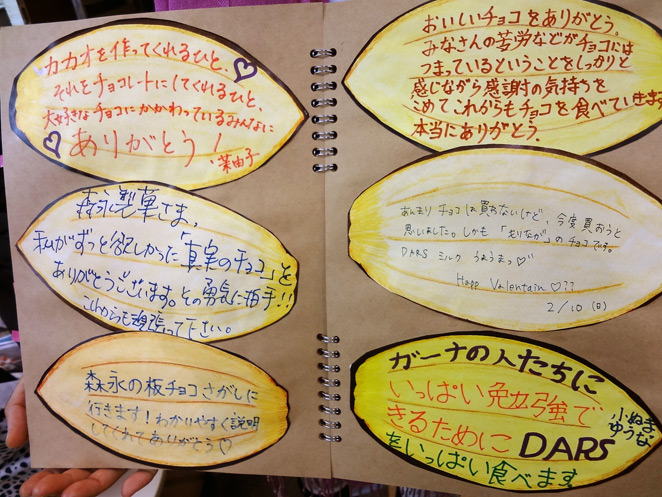 カカオを作ってくれるひと、
それをチョコレートにしてくれるひと、
大好きなチョコにかかわっているみんなに
ありがとう!
菜由子
森永製菓さま、
私がずっと欲しかった「真実のチョコ」を
ありがとうございます。その勇気に拍手!!
これからも頑張って下さい。
森永の板チョコさがしに
行きます!わかりやすく説明
してくれてありがとう♡
おいしいチョコをありがとう。
みなさんの苦労などがチョコには
つまっているということをしっかりと
感じながら感謝の気持ちを
こめてこれからもチョコを食べていきます
本当にありがとう。
あんまりチョコは買わないけど、今度買おうと
思いました。しかも「もりなが」のチョコです。
DARS ミルク うまうまっ♡
Happ Valentain ♡??
2/10(日)
ガーナの人たちに
いっぱい勉強で
きるために DARS
をいっぱい食べます
小ぬま
ゆうな